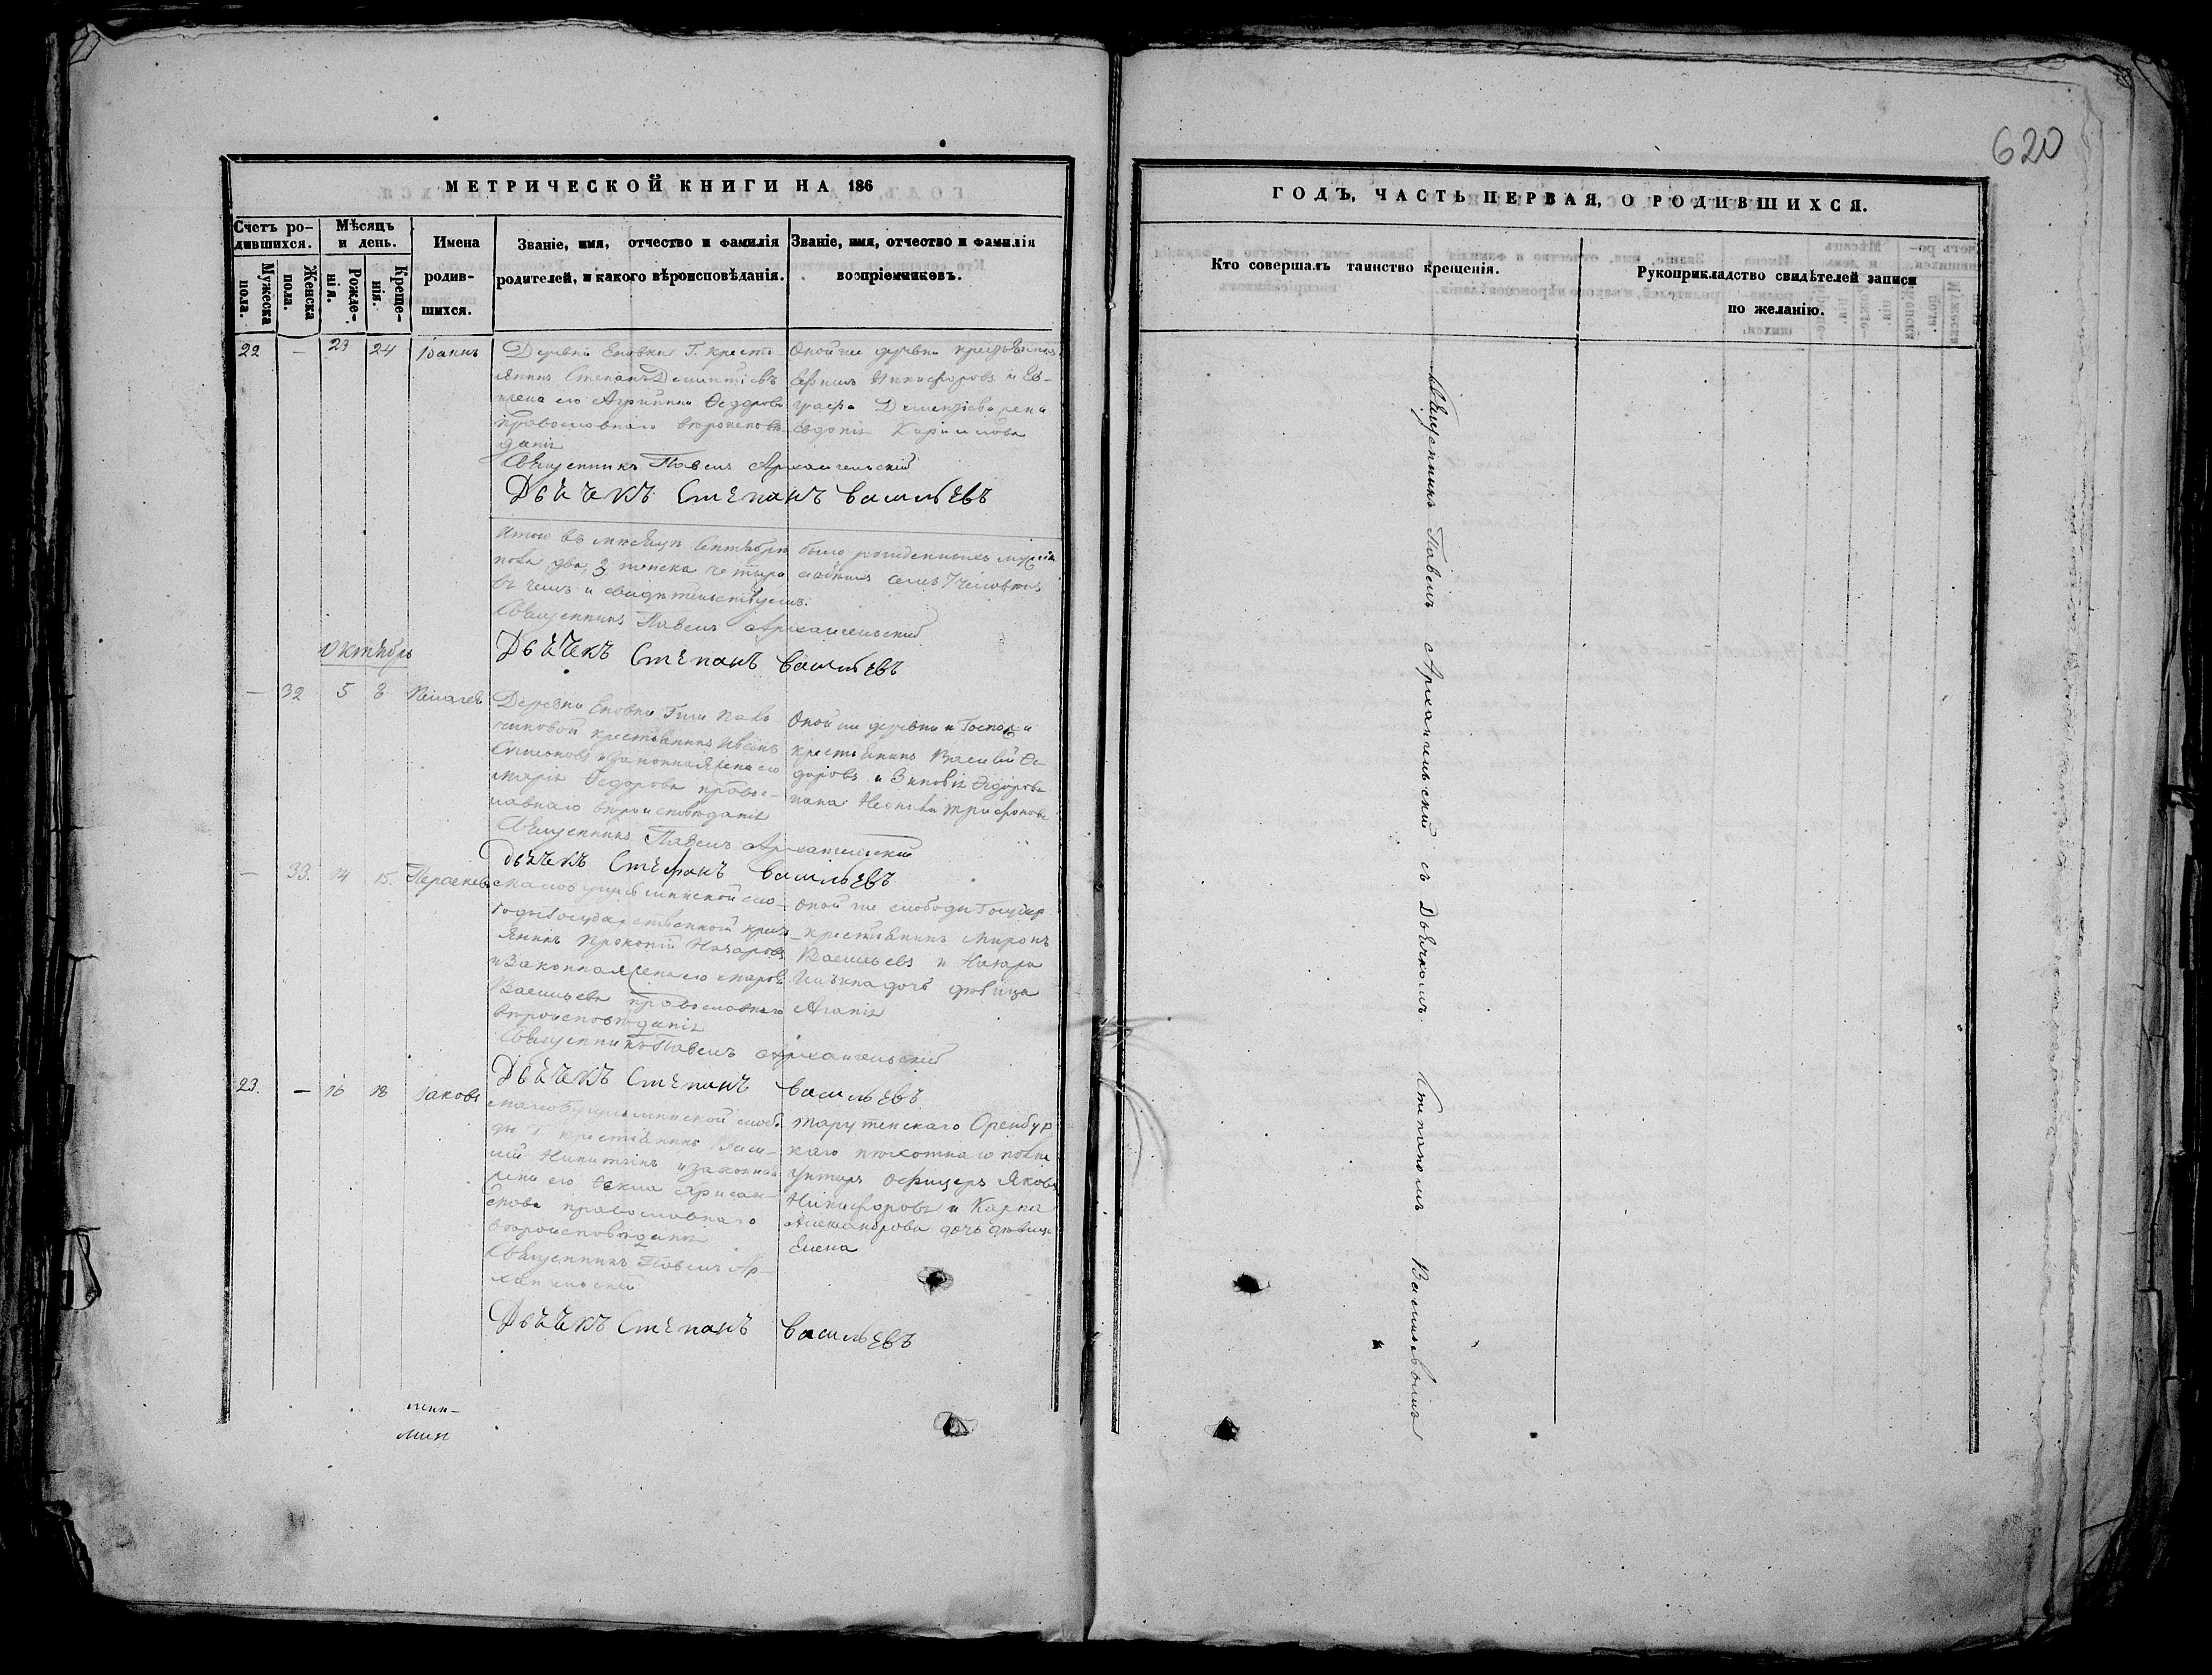 620
МЕТРИЧЕСКОЙ КНИГИ НА 186
Счетъ ро-
дившихся.
Мужеска
пола.
Женска
пола.
Мѣсяцъ
и день.
Рожде-
нія.
Креще-
нія.
Имена
родив-
шихся.
Званіе, имя, отчество и фамилія
родителей, и какого вѣроисповѣданія.
Званіе, имя, отчество и фамилія
воспріемниковъ.
22 — 23 24 Іоаннъ
Деревни Еловки Г. кресть
янинъ Степанъ Дементіевъ
жена его Агрипина Ѳедорова
православнаго вѣроисповѣ
данія
Оной же деревни крестьянинъ
Ефимъ Никифоровъ и Ев-
графа Дементіева жена
Евдокія Кирилова
Священникъ Павелъ Архангельскій
Дьячекъ Степанъ Васильевъ
Итого въ мѣсяцѣ Сентябрѣ было рожденныхъ мужска
пола два, женска четыре
въ чемъ и свидѣтельствуемъ.
Священникъ Павелъ Архангельскій
Дьячекъ Степанъ Васильевъ
Октябрь
— 32 5 8 Пелагея
Деревни Еловки Гжи Пав
криестьянинъ Иванъ
Симеоновъ и законная жена его
Марія Ѳедорова правос-
лавнаго вѣроисповѣданія
Оной же деревни и Госпожи
крестьянинъ Василій Ѳе-
доровъ и Зиновія Ѳедорова
Трифонова
Священникъ Павелъ Архангельскій
Дьячекъ Стефанъ Васильевъ
— 33. 14 15. Параскева
слo-
боды Государственной крест
янинъ Прокопій Назаровъ
и Законная жена его Марѳа
Васильева православнаго
вѣроисповѣданія
Оной же слободы Государ
крестьянинъ Миронъ
Васильевъ и Назара
Ильина дочь дѣвица
Агапія
Священникъ Павелъ Архангельскій
Дьячекъ Степанъ Васильевъ
23. — 16 18 Іаковъ
слобо
ды Г крестьянинъ Васи-
лій Никитинъ и законная
жена его Ѳекла Хрисан-
фова православнаго
вѣроисповѣданія
Тарутенскаго Оренбур
каго пѣхотнаго полка
унтеръ офицеръ Яковъ
Никифоровъ и Карпа
Александрова дочь дѣвица
Елена
Священникъ Павелъ Ар-
хангельскій
Дьячекъ Степанъ Васильевъ
ГОДЪ, ЧАСТЬ ПЕРВАЯ, О РОДИВШИХСЯ.
Кто совершалъ таинство крещенія.
Рукоприкладство свидѣтелей записи
по желанію.
Священникъ Павелъ Архангельскій съ Дьячкомъ Степаномъ Васильевымъ